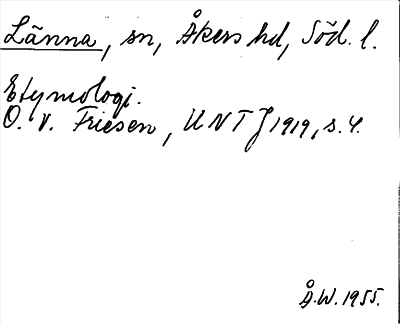 Länna, sn, Åkers hd, Söd. l.
Etymologi.
O. v. Friesen, UNTJ 1919, s. 4.
Å.W. 1955.